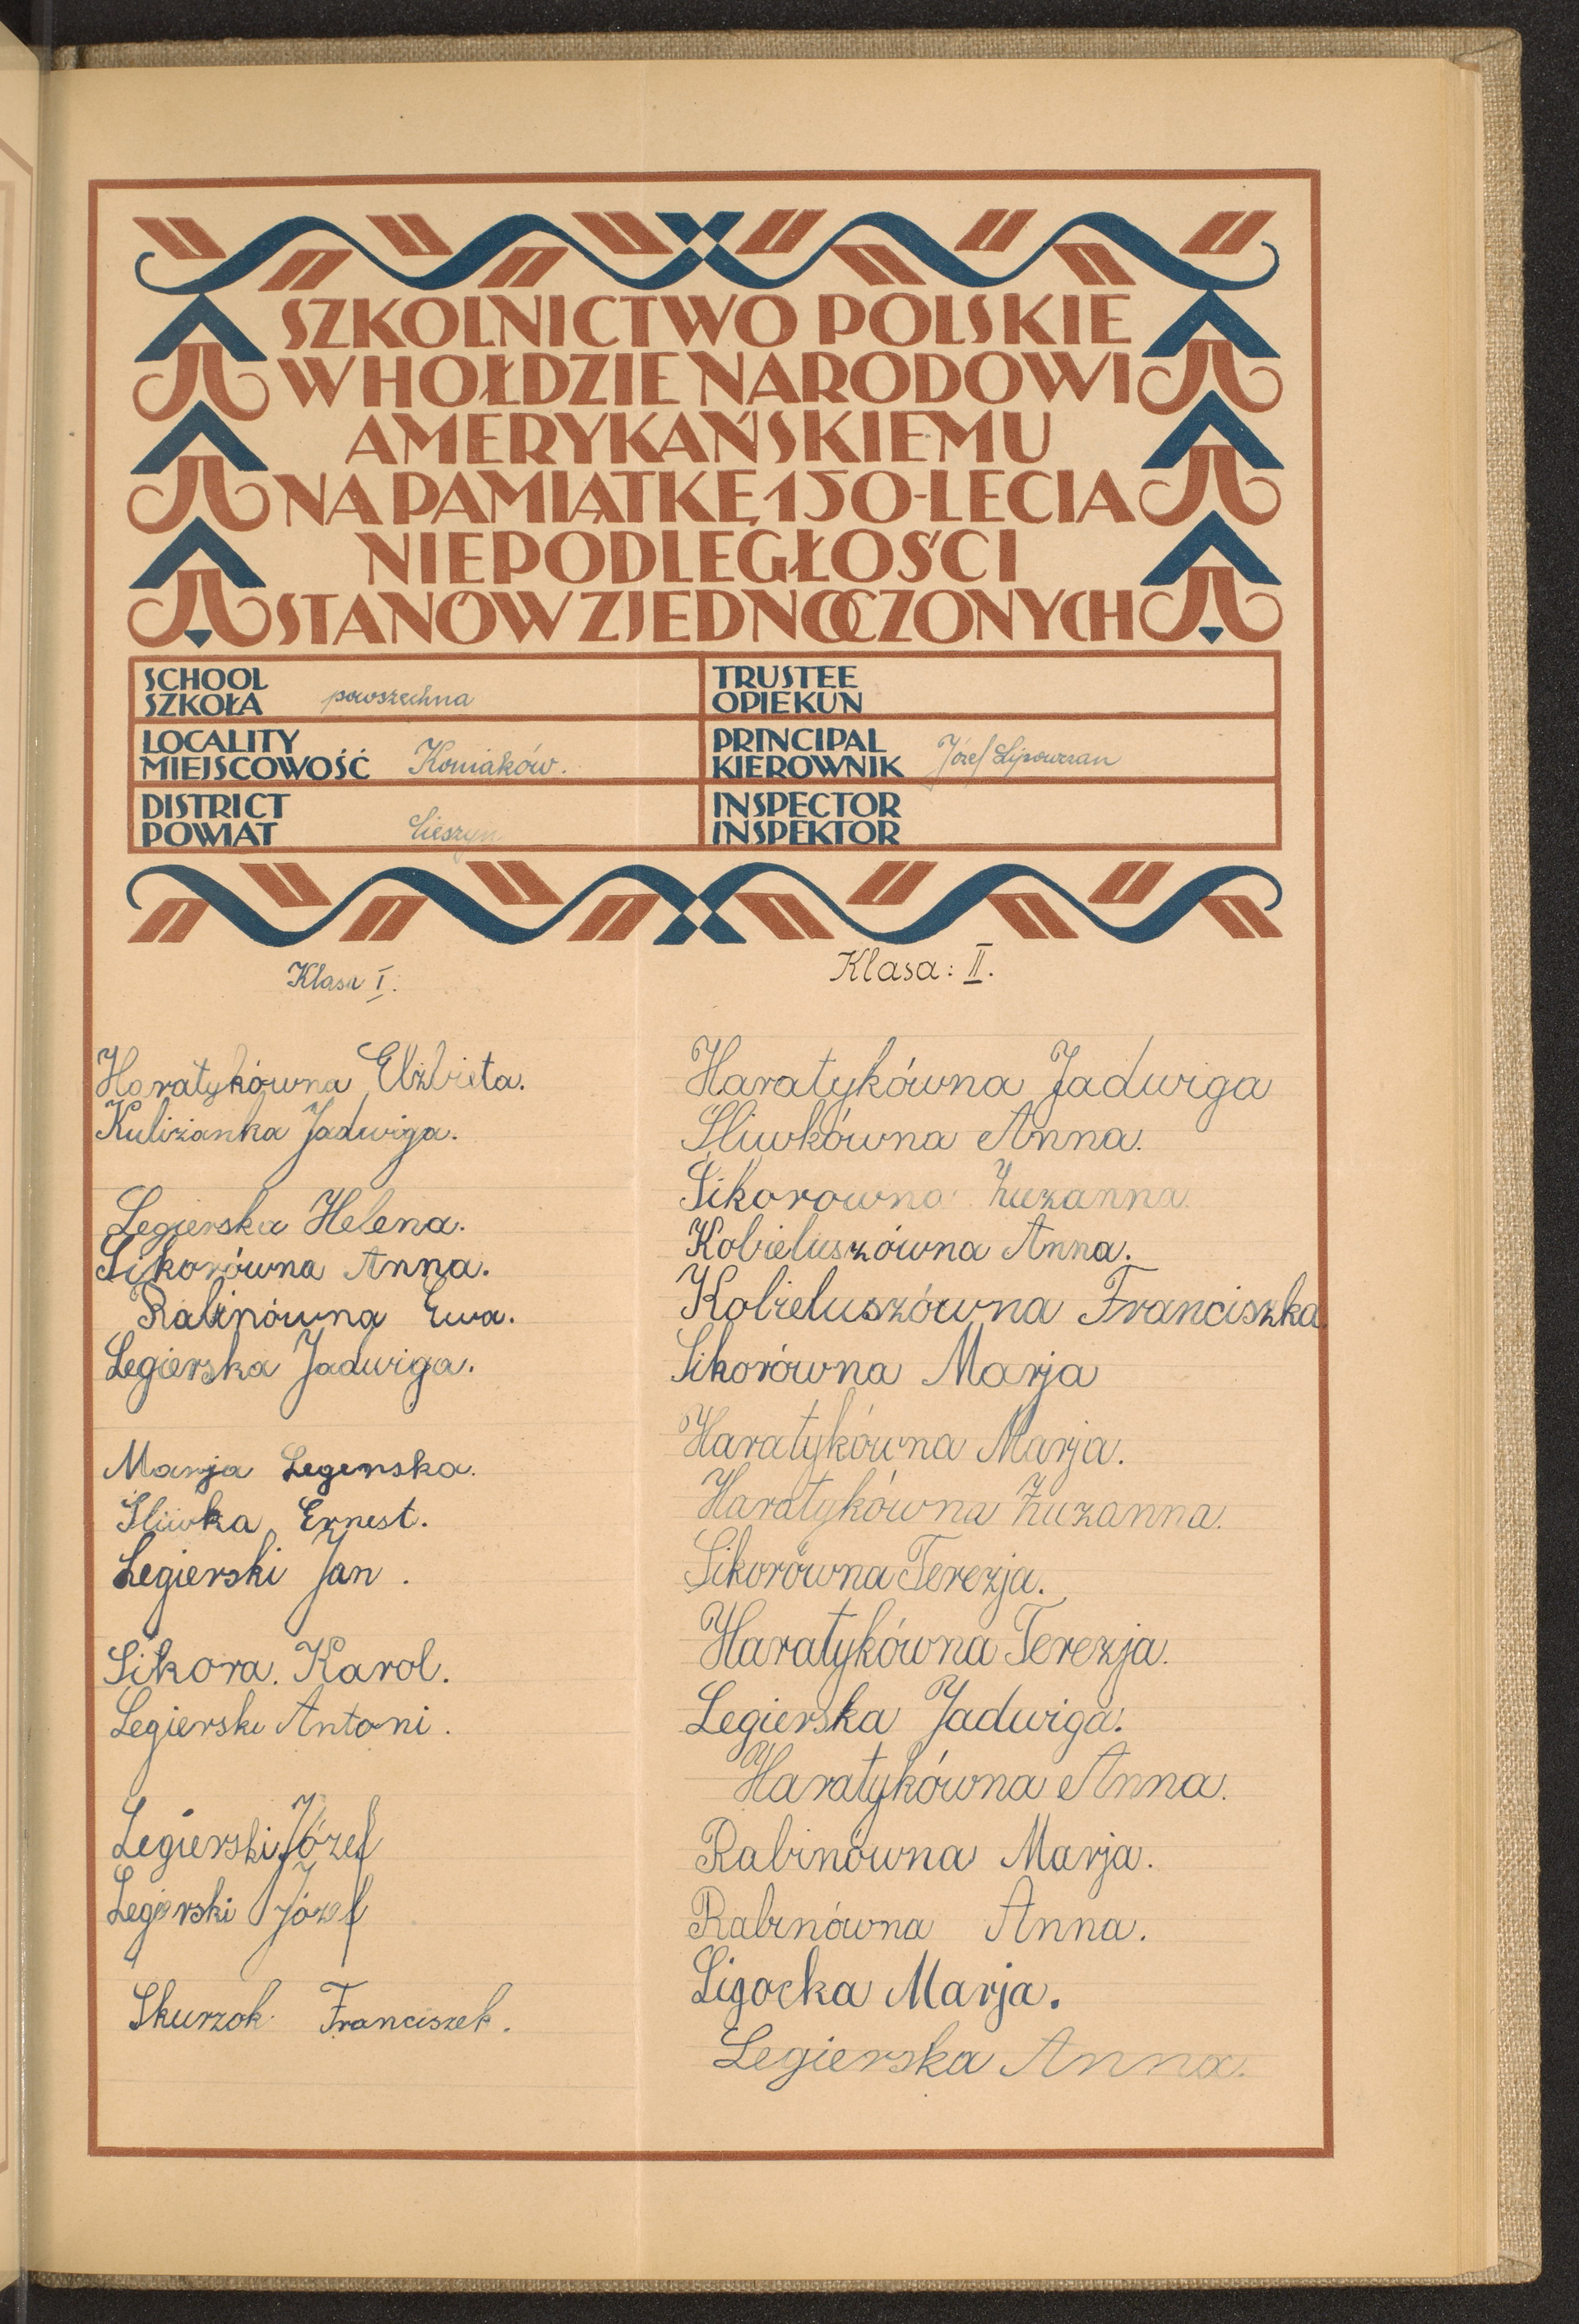 SZKOLNICTWO POLSKIE
W HOŁDZIE NARODOWI
AMERYKAŃSKIEMU
NA PAMIĄTKĘ 150-LECIA
NIEPODLEGŁOŚCI
STANÓW ZJEDNOCZONYCH
SCHOOL
SZKOŁA powszechna
TRUSTEE
OPIEKUN
LOCALITY
MIEJSCOWOŚĆ Koniaków.
PRINCIPAL
KIEROWNIK Józef Lipowczan
DISTRICT
POWIAT Cieszyn
INSPECTOR
INSPEKTOR
Klasa I.
Haratykówna Elżbieta.
Kuliżanka Jadwiga.
Legierska Helena.
Sikorówna Anna.
Rabinówna Ewa.
Legierska Jadwiga.
Marja Legerska.
Śliwka Ernest.
Legierski Jan.
Sikora. Karol.
Legierski Antoni.
Legierski Józef
Legierski Józef
Skurzok Franciszek.
Klasa: II.
Haratykówna Jadwiga
Śliwkówna Anna.
Sikorowna Zuzanna.
Kobieluszówna Anna.
Kobieluszówna Franciszka.
Sikorówna Marja
Haratykówna Marja.
Haratykówna Zuzanna.
Sikorówna Terezja.
Haratykówna Terezja.
Legierska Jadwiga.
Haratykówna Anna.
Rabinówna Marja.
Rabinówna Anna.
Ligocka Marja.
Legierska Anna.